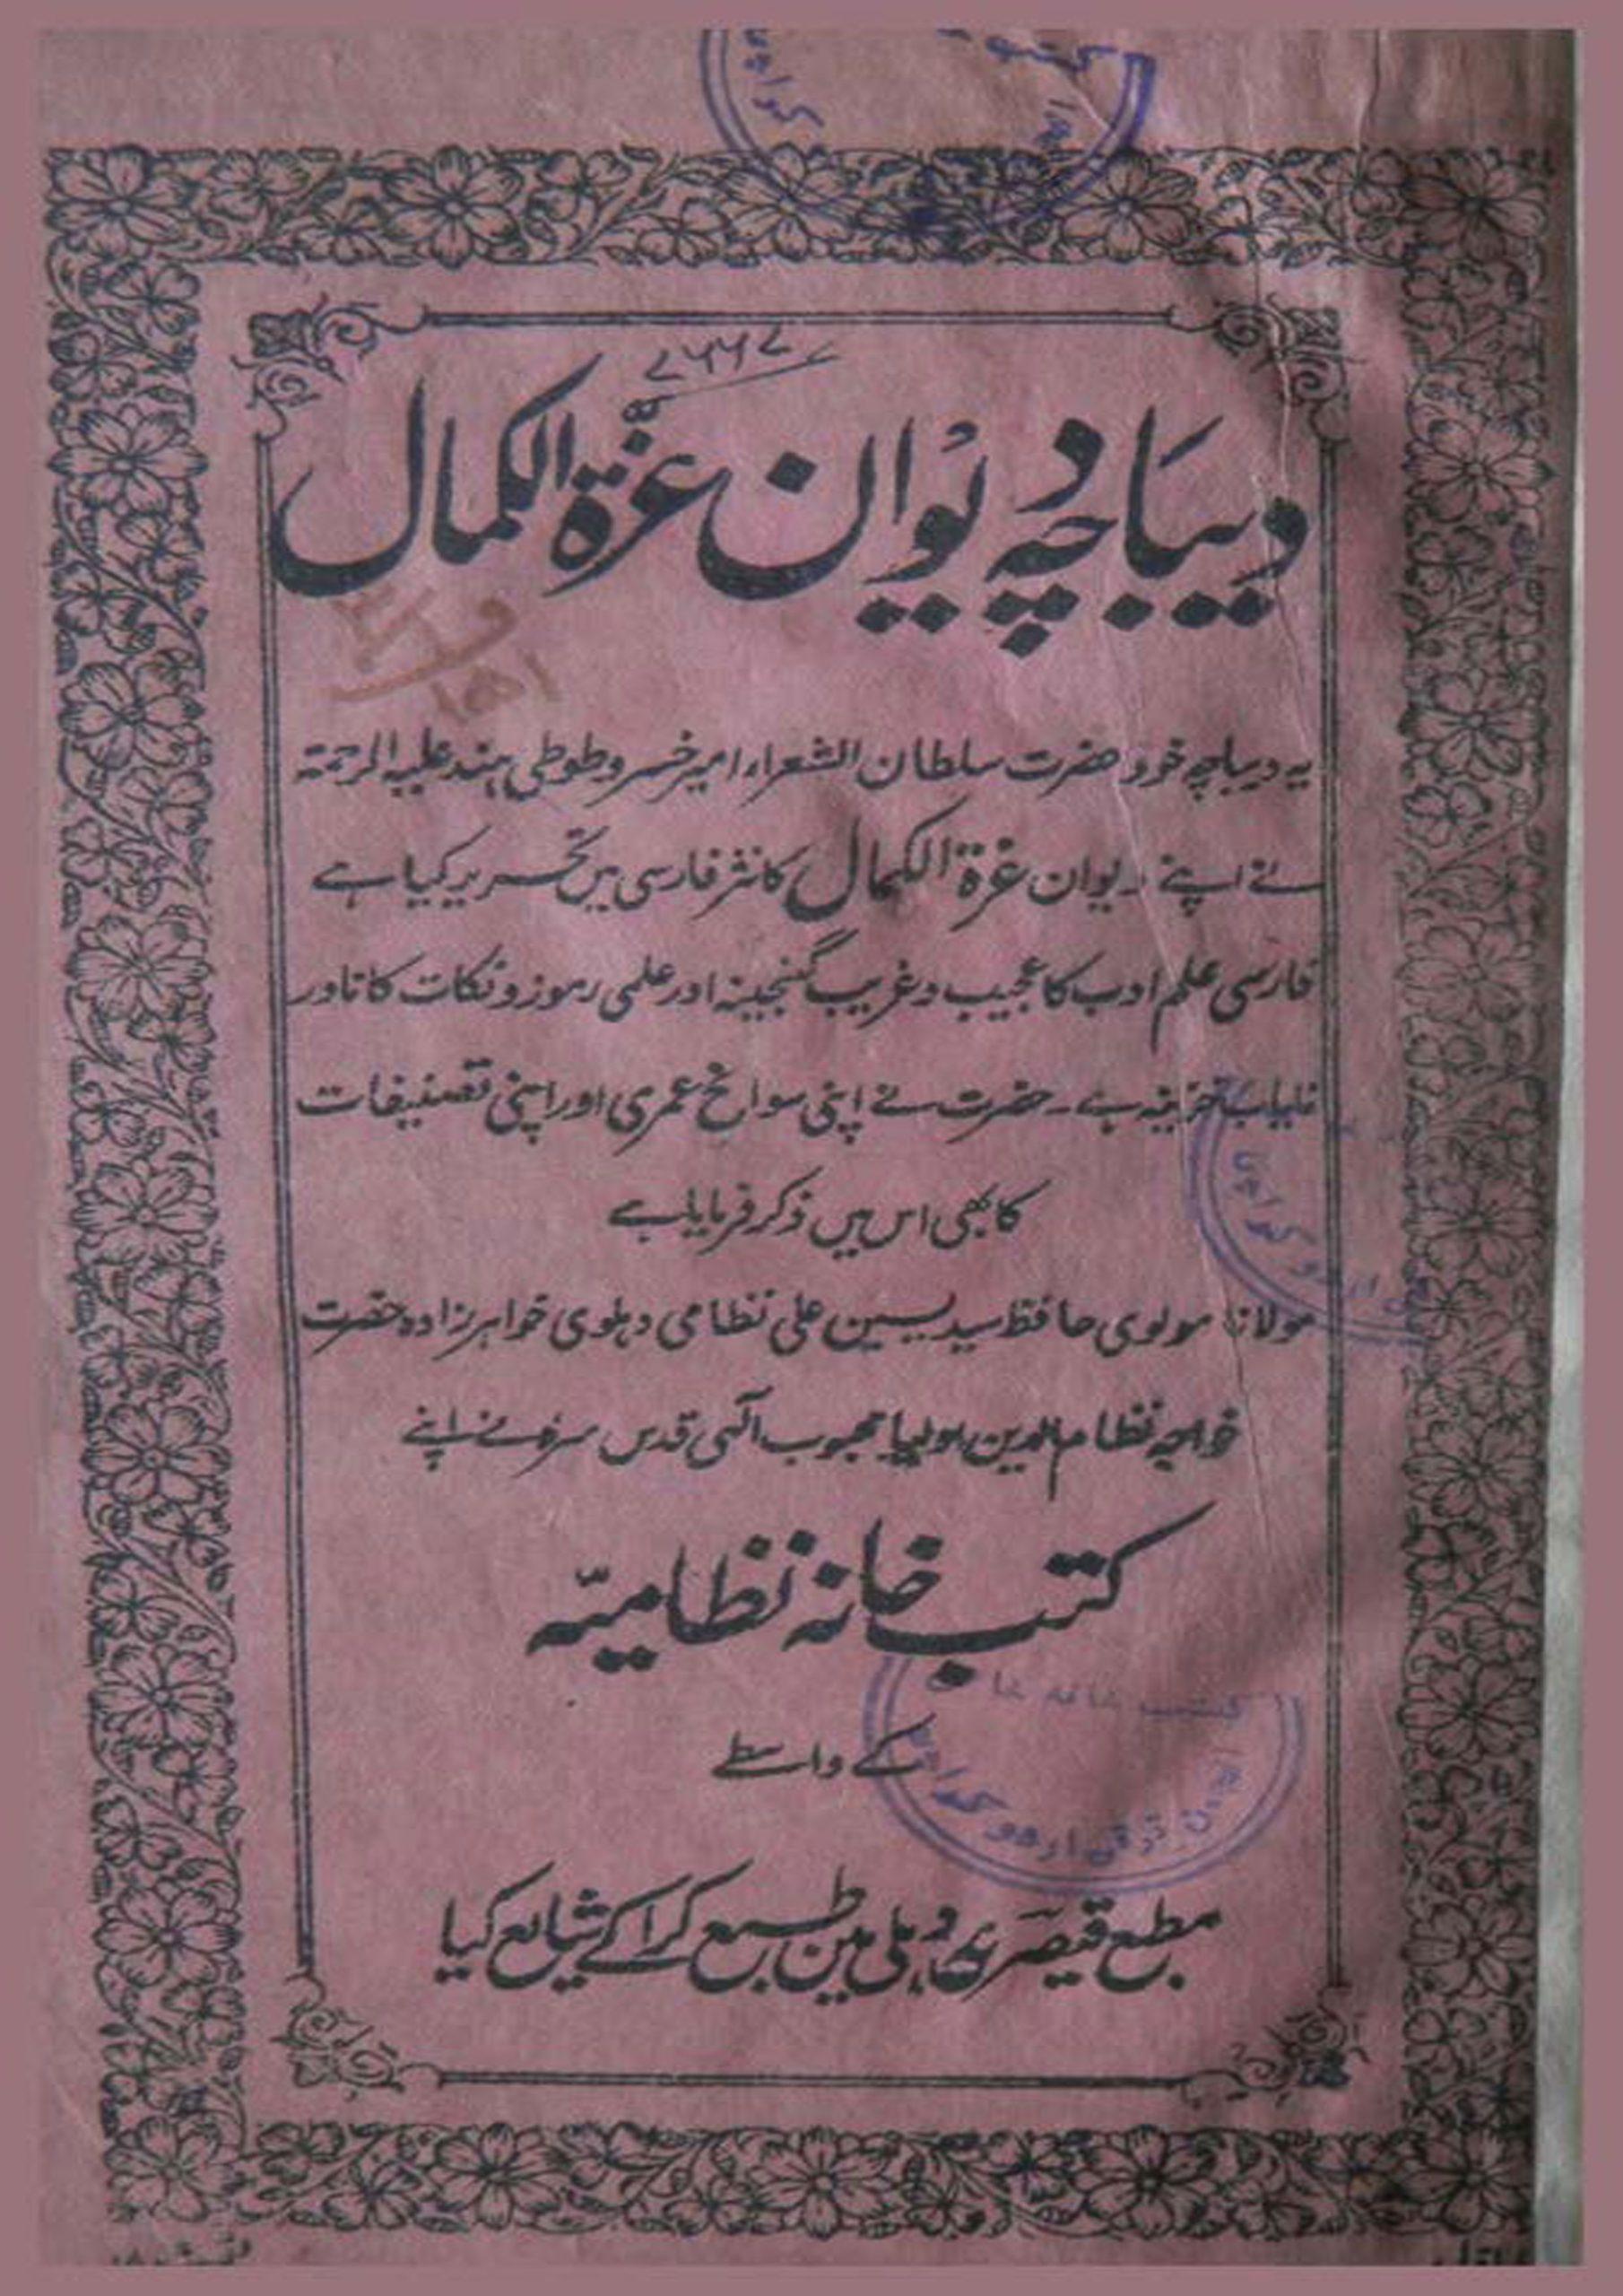 دیباچہ دیوان غرّة الکمال
یہ دیباچہ خود حضرت سلطان الشعراء امیر خسرو طوطی ہند علیہ الرحمتہ
نے اپنے دیوان غرة الکمال کا نثر فارسی میں تحریر کیا ہے
فارسی علم ادب کا عجیب و غریب گنجینہ اور علمی رموز و نکات کا نادر
نایاب خزینہ ہے ۔ حضرت نے اپنی سوانح عمری اور اپنی تصنیفات
کا بھی اس میں ذکر فرمایا ہے
مولانا مولوی حافظ سید یسین علی نظامی دہلوی خواہر زادہ حضرت
خواجہ نظام الدین اولیا محبوب آلہی قدس سرہ نے اپنے
کتب خانہ نظامیّہ
کے واسطے
کتب خانہ خا
انجمن ترقی اردو
مطبع قیصریہ دہلی مین طبع کرا کے شایع کیا